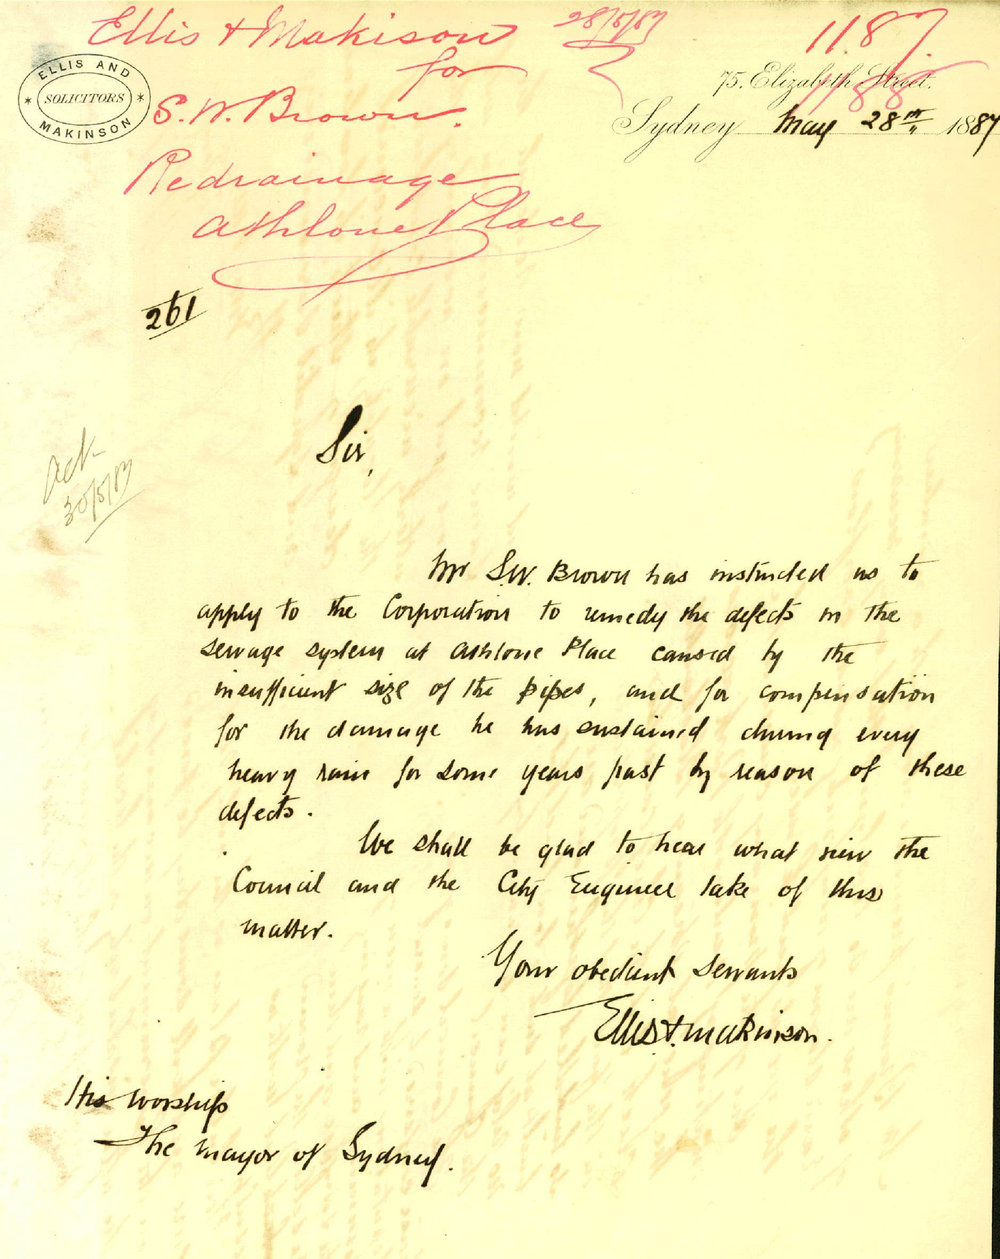 Ellis & Makison 28/5/87 1187
for
ELLIS AND MAKINSON
SOLICITORS
75. Elizabeth Street.
S. W. Brown.
Sydney May 28th 1887
Redrainage
Athlone Place
261
Sir,
Ack
30/5/87
Mr S.W. Brown has instructed us to
apply to the Corporation to remedy the defects in the
sewage system at Athlone Place caused by the
insufficient size of the pipes, and for compensation
for the damage he has sustained during every
heavy rain for some years past by reason of these
defects.
We shall be glad to hear what view the
Council and the City Engineer take of this
matter.
Your obedient servants
Ellis & Makinson.
His Worship
The Mayor of Sydney.